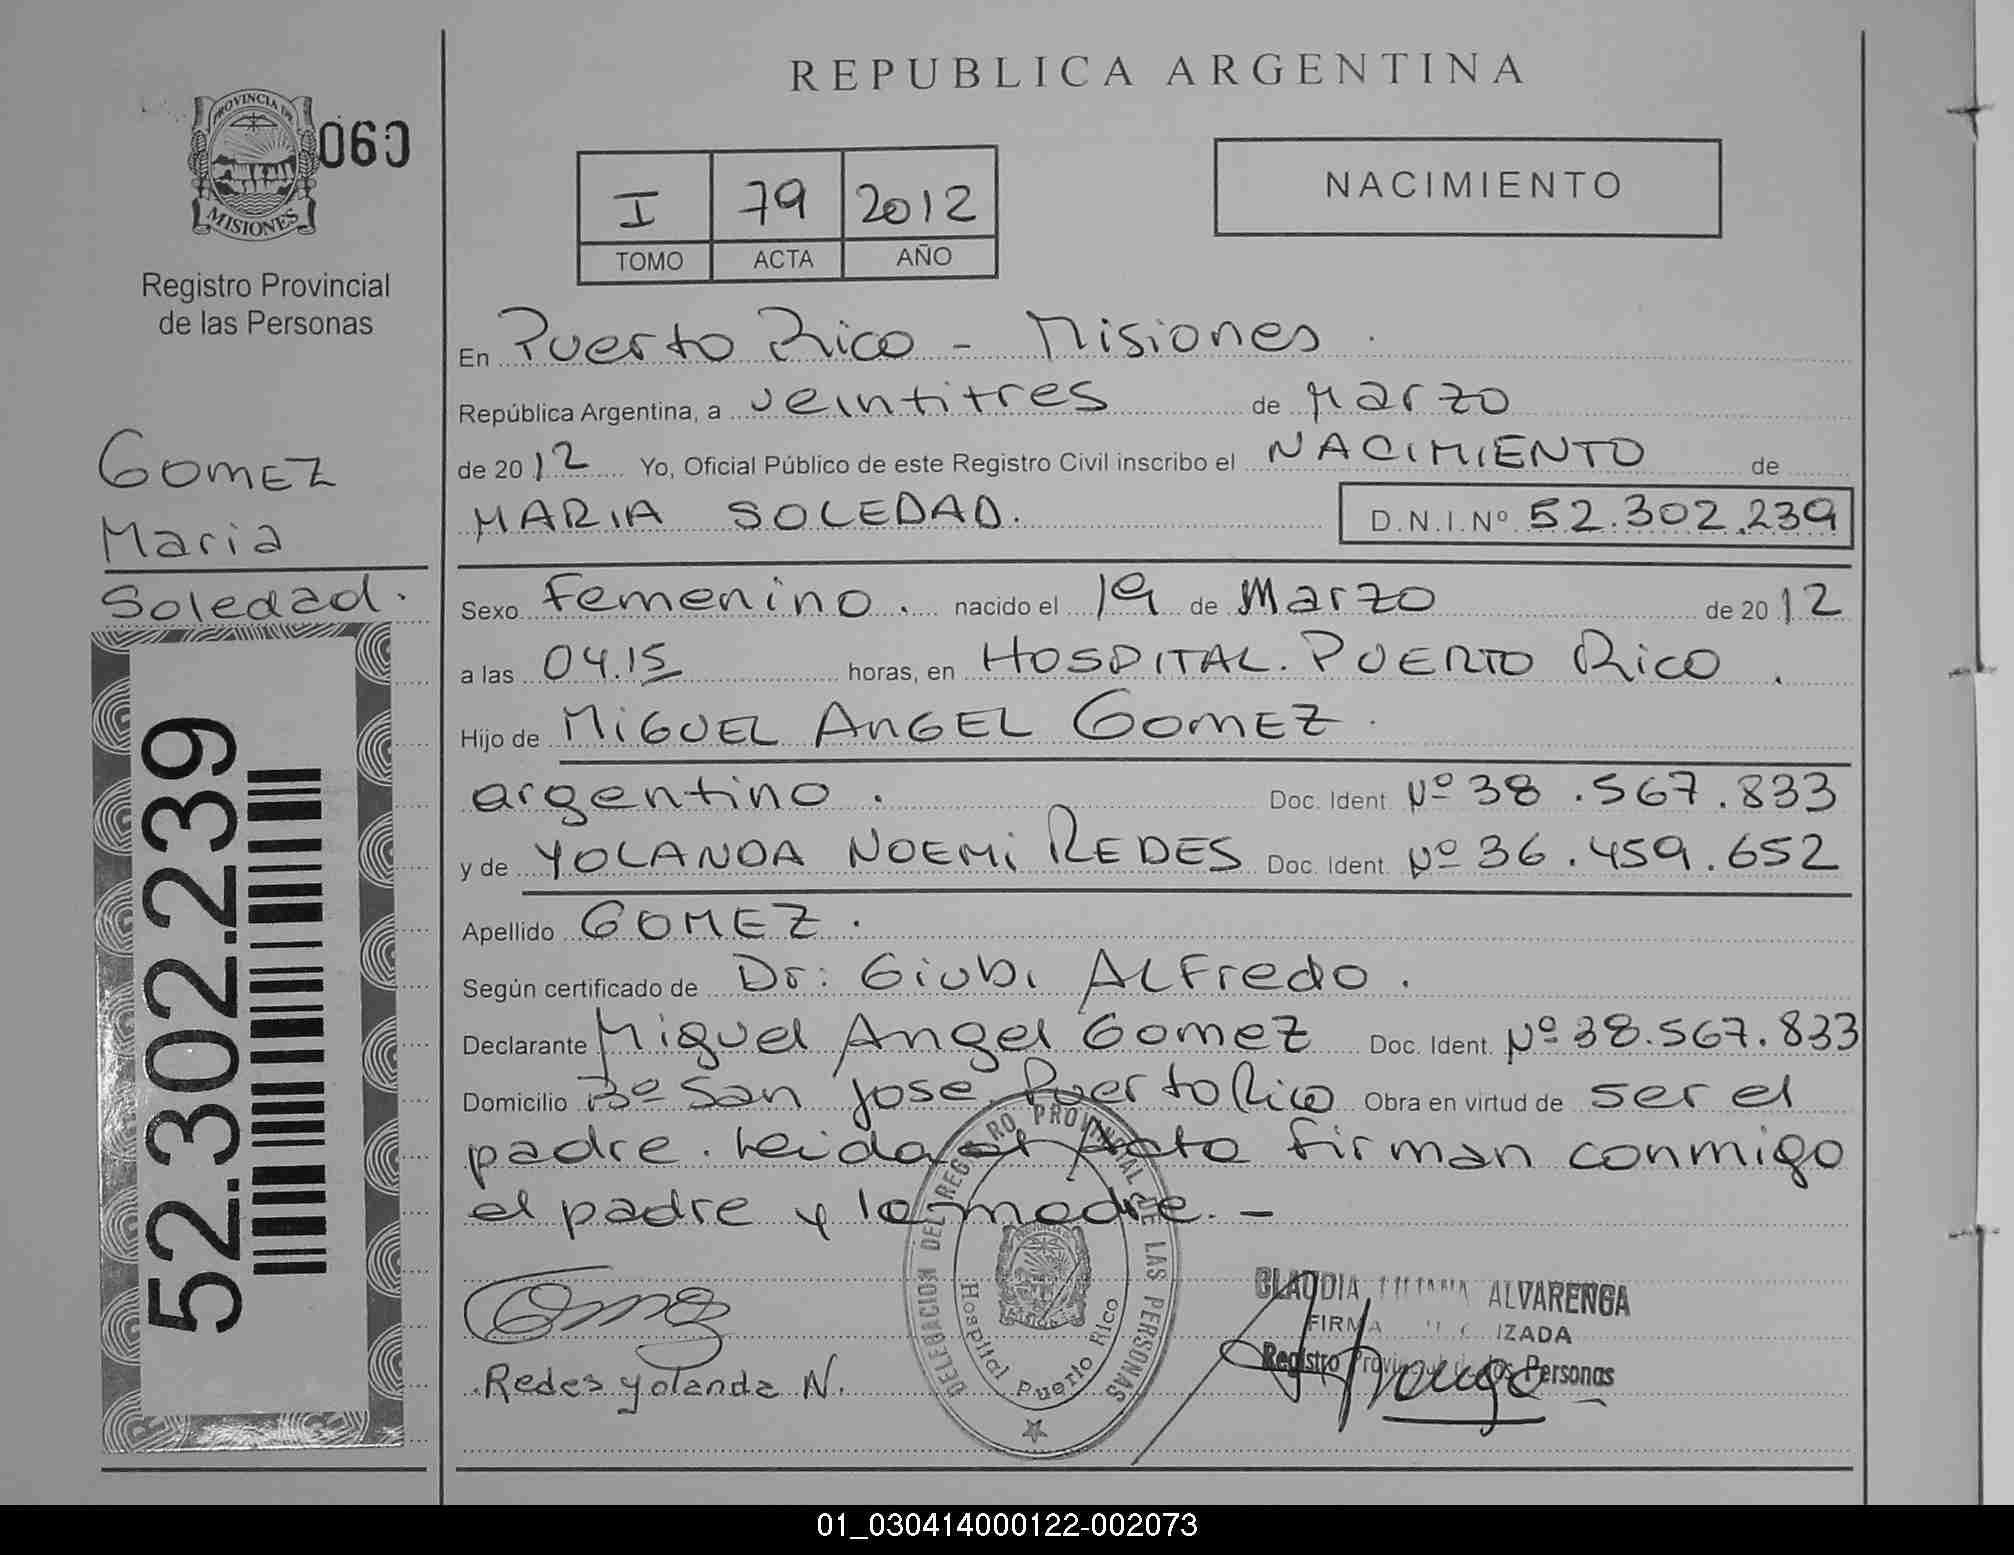 REPUBLICA ARGENTINA
PROVINCIA DE
MISIONES
060
Registro Provincial
de las Personas
I 79 2012
TOMO ACTA AÑO
NACIMIENTO
En Puerto Rico - Misiones.
República Argentina, a veintitres de Marzo
de 2012 Yo, Oficial Público de este Registro Civil inscribo el NACIMIENTO de
MARIA SOLEDAD. D.N.I.Nº 52.302.239
GOMEZ
Maria
Soledad.
52.302.239
Sexo Femenino. nacido el 19 de Marzo de 2012
a las 04.15 horas, en HOSPITAL. PUERTO Rico.
Hijo de MIGUEL ANGEL GOMEZ.
argentino. Doc. Ident. Nº 38.567.833
y de YOLANDA NOEMI REDES Doc. Ident. Nº 36.459.652
Apellido GOMEZ.
Según certificado de Dr: Giubi ALFredo.
Declarante Miguel Angel Gomez Doc. Ident. Nº 38.567.833
Domicilio Bº San Jose Puerto Rico Obra en virtud de ser el
padre. Leida el Acta firman conmigo
el padre y la madre. -
DELEGACION DEL REGISTRO PROVINCIAL DE LAS PERSONAS
Hospital Puerto Rico
Redes Yolanda N.
CLAUDIA ALVARENGA
FIRMA
Registro Provincial de las Personas
01_030414000122-002073